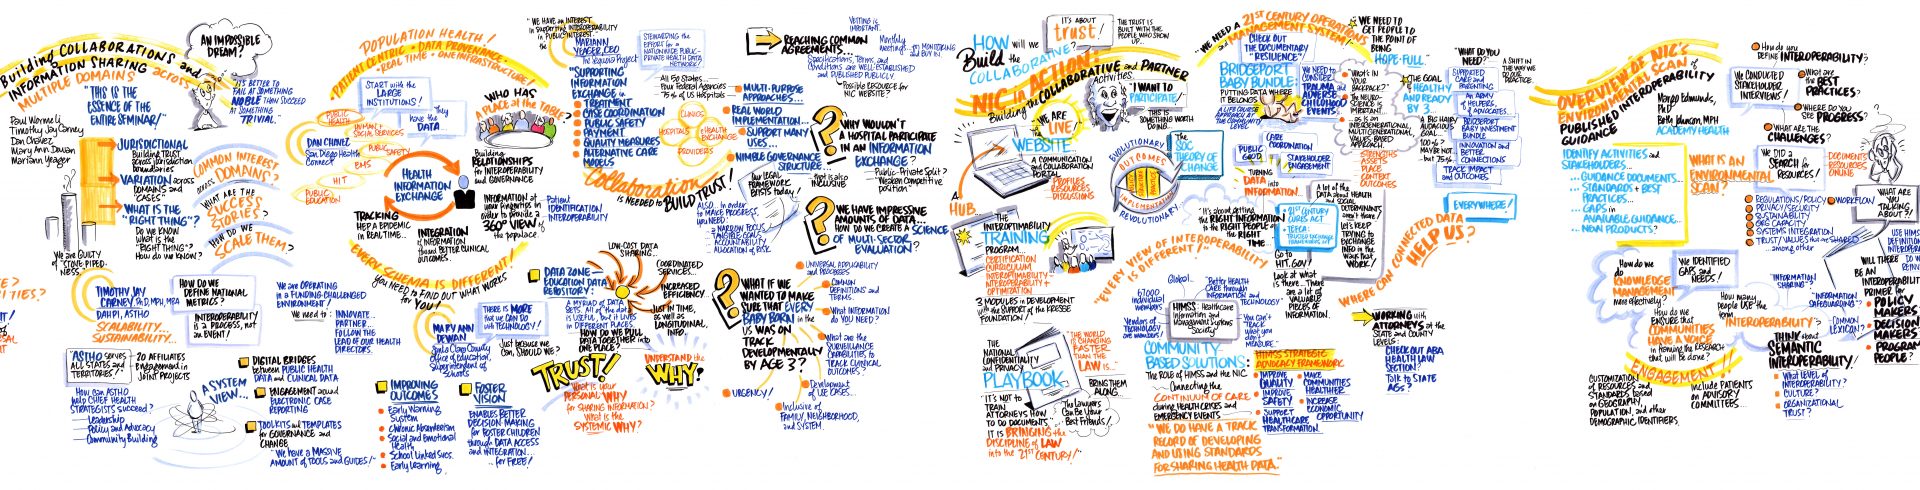 Building COLLABORATIONS and
INFORMATION SHARING across
MULTIPLE DOMAINS
"THIS IS THE
ESSENCE OF THE
ENTIRE SEMINAR!"
Paul Wormeli
Timothy Jay Carney
Dan Chavez
Mary Ann Dewan
Mariann Yeager
AN IMPOSSIBLE
DREAM?
IT'S BETTER TO
FAIL AT SOMETHING
NOBLE THAN SUCCEED
AT SOMETHING
TRIVIAL.
JURISDICTIONAL
Building TRUST
across jurisdiction
boundaries
VARIATION across
DOMAINS and
"CASES"
WHAT IS THE
"RIGHT THING"?
Do we KNOW
WHAT is the
"RIGHT THING"?
How do we KNOW?
We are GUILTY
of "STOVE-PIPED-
NESS."
COMMON INTEREST
across DOMAINS?
WHAT ARE THE
SUCCESS
STORIES?
HOW DO WE
SCALE THEM?
TIMOTHY JAY
CARNEY, PhD, MPH, MBA
DAHPI, ASTHO
SCALABILITY...
SUSTAINABILITY...
HOW DO WE
DEFINE NATIONAL
METRICS?
INTEROPERABILITY
is a PROCESS, not
an EVENT!
ASTHO SERVES
ALL STATES and
TERRITORIES!
20 AFFILIATES
Engagement in
JOINT PROJECTS
How can ASTHO
help CHIEF HEALTH
STRATEGISTS succeed?
Leadership
Policy and Advocacy
Community Building
A SYSTEM
VIEW...
DIGITAL BRIDGES
between PUBLIC HEALTH
DATA and CLINICAL DATA
ENGAGEMENT around
ELECTRONIC CASE
REPORTING
TOOLKITS and TEMPLATES
for GOVERNANCE and
CHANGE
"We HAVE a MASSIVE
AMOUNT of TOOLS and GUIDES!"
POPULATION HEALTH!
PATIENT CENTRIC • DATA PROVENANCE •
REAL TIME • ONE INFRASTRUCTURE!
START with the
LARGE
INSTITUTIONS!
They
have the
DATA
PUBLIC
HEALTH
HUMAN +
SOCIAL SERVICES
DAN CHAVEZ
San Diego Health
Connect
PUBLIC
SAFETY
EMS
HIT
PUBLIC
EDUCATION
HEALTH
INFORMATION
EXCHANGE
TRACKING
HEP A EPIDEMIC
in REAL TIME...
INTEGRATION
of INFORMATION
toward BETTER CLINICAL
OUTCOMES.
WHO HAS
A PLACE at the TABLE?
Building
RELATIONSHIPS
for INTEROPERABILITY
and GOVERNANCE
INFORMATION at
your fingertips in
order to provide a
360° VIEW of
the populace.
Patient
IDENTIFICATION
INTEROPERABILITY
EVERY SCHEMA IS DIFFERENT!
YOU NEED TO FIND OUT WHAT WORKS
for YOU!
We are OPERATING
in a FUNDING-CHALLENGED
ENVIRONMENT!
We need to:
INNOVATE...
PARTNER...
FOLLOW THE
LEAD of OUR HEALTH
DIRECTORS.
MARY ANN
DEWAN
Santa Clara County
Office of Education,
Superintendent of
Schools
THERE IS MORE
that we CAN DO
with TECHNOLOGY!
Just because we
CAN, SHOULD WE?
IMPROVING
OUTCOMES
Early Warning
System
Chronic Absenteeism
Social and Emotional
Health
School Linked Svcs.
Early Learning
FOSTER
VISION
ENABLES BETTER
DECISION MAKING
for FOSTER CHILDREN
through DATA ACCESS
and INTEGRATION...
...for FREE!
"WE HAVE an INTEREST
in Supporting INTEROPERABILITY
in the PUBLIC INTEREST."
MARIANN
YEAGER, CEO
The Sequoia Project
"SUPPORTING
INFORMATION
EXCHANGE in
TREATMENT
CARE COORDINATION
PUBLIC SAFETY
PAYMENT
QUALITY MEASURES
ALTERNATIVE CARE
MODELS
STEWARDING the
EFFORTS for a
NATIONWIDE PUBLIC-
PRIVATE HEALTH DATA
NETWORK!
All 50 States
Four Federal Agencies
75% of US Hospitals
CLINICS
HOSPITALS
eHEALTH
EXCHANGE
PROVIDERS
Collaboration
IS NEEDED to BUILD TRUST!
DATA ZONE—
EDUCATION DATA
REPOSITORY:
A MYRIAD of DATA
SETS. All of the data
is USEFUL, but it LIVES
in DIFFERENT PLACES.
HOW DO WE PULL
DATA TOGETHER into
ONE PLACE?
LOW-COST DATA
SHARING...
COORDINATED
SERVICES...
INCREASED
EFFICIENCY...
JUST IN TIME,
as well as
LONGITUDINAL
INFO.
TRUST!
What is your
PERSONAL WHY
for SHARING INFORMATION?
What is the
SYSTEMIC WHY?
UNDERSTAND the
WHY.
REACHING COMMON
AGREEMENTS...
Specifications, Terms, and
Conditions are WELL-ESTABLISHED
and PUBLISHED PUBLICLY.
POSSIBLE RESOURCE for
NIC WEBSITE?
VETTING is
IMPORTANT.
Monthly
Meetings... on MONITORING
and BUY IN
MULTI-PURPOSE
APPROACHES...
REAL WORLD
IMPLEMENTATION...
SUPPORT MANY
USES...
NIMBLE GOVERNANCE
STRUCTURE
that is also
INCLUSIVE
Our LEGAL
FRAMEWORK
EXISTS TODAY!
ALSO... In order
to MAKE PROGRESS,
you NEED:
a NARROW FOCUS
TANGIBLE GOALS
ACCOUNTABILITY
ALLOCATION of RISK.
WHY WOULDN'T
A HOSPITAL PARTICIPATE
IN AN INFORMATION
EXCHANGE?
Public-Private Split?
"Weaken Competitive
position"
WE HAVE IMPRESSIVE
AMOUNTS OF DATA...
HOW DO WE CREATE A SCIENCE
OF MULTI-SECTOR
EVALUATION?
WHAT IF WE
WANTED TO MAKE
SURE THAT EVERY
BABY BORN in the
US WAS ON
TRACK
DEVELOPMENTALLY
BY AGE 3??
UNIVERSAL APPLICABILITY
and PROCESSES
Common
DEFINITIONS and
TERMS.
WHAT INFORMATION
do YOU NEED?
What are the
SURVEILLANCE
CAPABILITIES to
TRACK CLINICAL
OUTCOMES?
Development
of USE CASES...
URGENCY!
Inclusive of
FAMILY, NEIGHBORHOOD,
and SYSTEM.
HOW will we
Build the
COLLABORATIVE?
IT'S ABOUT
trust!
THE TRUST IS
BUILT WITH THE
PEOPLE WHO SHOW
UP...
NIC in ACTION
Building the COLLABORATIVE and PARTNER
ACTIVITIES.
WE ARE
LIVE!
I WANT TO
PARTICIPATE!
THIS IS
SOMETHING WORTH
DOING...
WEBSITE...
A COMMUNICATION
and COLLABORATION
PORTAL
PROFILES
RESOURCES
DISCUSSIONS
HUB...
THE
INTEROPERABILITY
TRAINING
PROGRAM
CERTIFICATION
CURRICULUM
INTEROPERABILITY +
OPTIMIZATION
3 MODULES in DEVELOPMENT
with the SUPPORT of the KRESGE
FOUNDATION!
THE
NATIONAL
CONFIDENTIALITY
and PRIVACY
PLAYBOOK
IT'S NOT to
TRAIN
ATTORNEYS HOW
TO DO DOCUMENTS...
IT IS BRINGING the
DISCIPLINE of LAW
into the 21ST CENTURY!"
THE WORLD
IS CHANGING
FASTER
THAN the
LAW is...
BRING THEM
ALONG...
The Lawyers
Can Be Your
Best Friends!
EVOLUTIONARY
OUTCOMES
IMPLEMENTATION
REVOLUTIONARY
The
SOC
THEORY OF
CHANGE
"EVERY VIEW OF INTEROPERABILITY
IS DIFFERENT!"
Global...
67,000
individual
members
Vendors of
TECHNOLOGY
are MEMBERS!
HIMSS: Healthcare
Information and
Management Systems
Society
"Better HEALTH
CARE through
INFORMATION and
TECHNOLOGY"
You can't
TRACK
what you
don't
MEASURE.
COMMUNITY-
BASED SOLUTIONS:
The ROLE of HIMSS and the NIC
...Connecting the
CONTINUUM OF CARE
during HEALTH CRISES and
EMERGENCY EVENTS
"WE DO HAVE A TRACK
RECORD OF DEVELOPING
AND USING STANDARDS
FOR SHARING HEALTH DATA."
HIMSS STRATEGIC
ADVOCACY FRAMEWORK
IMPROVE
QUALITY
IMPROVE
SAFETY
SUPPORT
HEALTHCARE
TRANSFORMATION
MAKE
COMMUNITIES
HEALTHIER
INCREASE
ECONOMIC
OPPORTUNITY
"WE NEED A
21ST CENTURY OPERATIONS
and MANAGEMENT SYSTEM!"
CHECK OUT
the DOCUMENTARY
"RESILIENCE"
BRIDGEPORT
BABY BUNDLE:
PUTTING DATA WHERE
IT BELONGS
WE NEED to
CONSIDER
TRAUMA and
ADVERSE
CHILDHOOD
EVENTS
PUBLIC
GOOD
CARE
COORDINATION
STAKEHOLDER
ENGAGEMENT
TURNING
DATA
into
INFORMATION...
"It's about getting
the RIGHT INFORMATION
to the RIGHT PEOPLE at
the RIGHT
TIME...
21ST CENTURY
CURES ACT
TEFCA:
TRUSTED EXCHANGE
FRAMEWORK
Go to
HIT.GOV!
A lot of the
DATA about HEALTH
and SOCIAL
DETERMINANTS
aren't there!
Let's KEEP
TRYING to
EXCHANGE
INFO in the
WAYS that
WORK!
Look at what
is there... There
are a LOT of
VALUABLE
PIECES of
INFORMATION!
WE NEED TO
GET PEOPLE TO
THE POINT OF
BEING
HOPE-FULL.
WHAT'S IN
YOUR
BACKPACK?
the NEURO-
SCIENCE is
IMPORTANT
... as is an
INTERGENERATIONAL,
MULTIGENERATIONAL
VALUES-BASED
APPROACH.
STRENGTHS
ASSETS
PLACE
CONTEXT
OUTCOMES
THE GOAL:
HEALTHY
AND READY
BY 3
A BIG HAIRY
AUDACIOUS
GOAL!
100%?
MAYBE not...
but 75%
WHAT DO YOU
NEED?
A SHIFT in
the WAY WE
DO OUR
PRACTICE...
SUPPORTED
PARENTING
AN ARMY
of HELPERS,
ADVOCATES
BRIDGEPORT
BABY INVESTMENT
BUNDLE
INNOVATION and
BETTER
CONNECTIONS
TRACK IMPACT
and OUTCOMES
EVERYWHERE!
WHERE CAN CONNECTED DATA
HELP US?
WORKING with
ATTORNEYS at the
STATE and COUNTY
LEVELS:
CHECK OUT ABA
HEALTH LAW
SECTION?
Talk to STATE
AGs?
OVERVIEW OF NIC'S
ENVIRONMENTAL SCAN of
PUBLISHED INTEROPERABILITY
GUIDANCE
Margo Edmunds,
Betty Duncan, MPH
ACADEMY HEALTH
IDENTIFY ACTIVITIES and
STAKEHOLDERS...
...GUIDANCE DOCUMENTS...
...STANDARDS + BEST
PRACTICES...
...GAPS in
AVAILABLE GUIDANCE...
...NEW PRODUCTS?
WHAT IS AN
ENVIRONMENTAL
SCAN?
WE CONDUCTED
STAKEHOLDER
INTERVIEWS!
How do you
DEFINE INTEROPERABILITY?
What are
the BEST
PRACTICES?
WHERE DO YOU
SEE PROGRESS?
WHAT ARE the
CHALLENGES?
WE DID A
SEARCH for
RESOURCES!
DOCUMENTS
RESOURCES
ONLINE
REGULATIONS/POLICY
PRIVACY/SECURITY
SUSTAINABILITY
CAPACITY
SYSTEMS INTEGRATION
TRUST/VALUES that are SHARED
...among other
WORKFLOW
WHAT ARE
YOU
TALKING
ABOUT?!
How do we
do KNOWLEDGE
MANAGEMENT
more effectively?
WE IDENTIFIED
GAPS and
NEEDS!
HOW do WE
ENSURE that
COMMUNITIES
HAVE A VOICE
in framing the RESEARCH
that will be done?
How many
people USE the
term
"INTEROPERABILITY"?
"INFORMATION
SHARING"
"INFORMATION
SAFEGUARDING"?
COMMON
LEXICON?
THINK about
SEMANTIC
INTEROPERABILITY!
What LEVEL of
INTEROPERABILITY?
CULTURE?
ORGANIZATIONAL
TRUST?
ENGAGEMENT!
CUSTOMIZATION
of RESOURCES and
STANDARDS based
on GEOGRAPHY,
POPULATION, and other
DEMOGRAPHIC IDENTIFIERS.
Include PATIENTS
on ADVISORY
COMMITTEES
WILL THERE
BE AN
PRIMER for
POLICY
MAKERS
DECISION
MAKERS
PEOPLE?